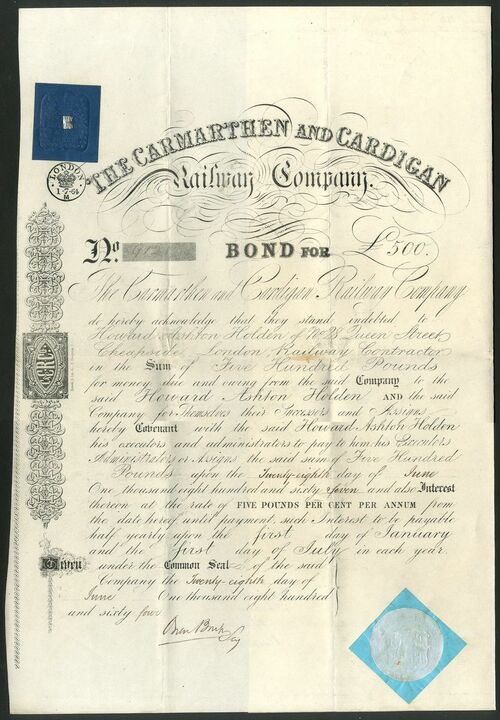 THE CARMARTHEN AND CARDIGAN
Railway Company.
LONDON
1-7-64
M
No. BOND FOR £500.
The Carmarthen and Cardigan Railway Company
do hereby acknowledge that they stand indebted to
Howard Ashton Holden of No 28 Queen Street
Cheapside London Railway Contractor
in the Sum of Five Hundred Pounds
for money due and owing from the said Company to the
said Howard Ashton Holden AND the said
Company for Themselves their Successors and Assigns
hereby Covenant with the said Howard Ashton Holden
his executors and administrators to pay to him his Executors
Administrators or Assigns the said sum of Five Hundred
Pounds upon the Twenty-eighth day of June
One thousand eight hundred and sixty seven and also Interest
thereon at the rate of FIVE POUNDS PER CENT PER ANNUM from
the date hereof until payment, such Interest to be payable
half yearly upon the first day of January
and the first day of July in each year
Given under the Common Seal of the said
Company the Twenty-eighth day of
June One thousand eight hundred
and sixty four
Secy